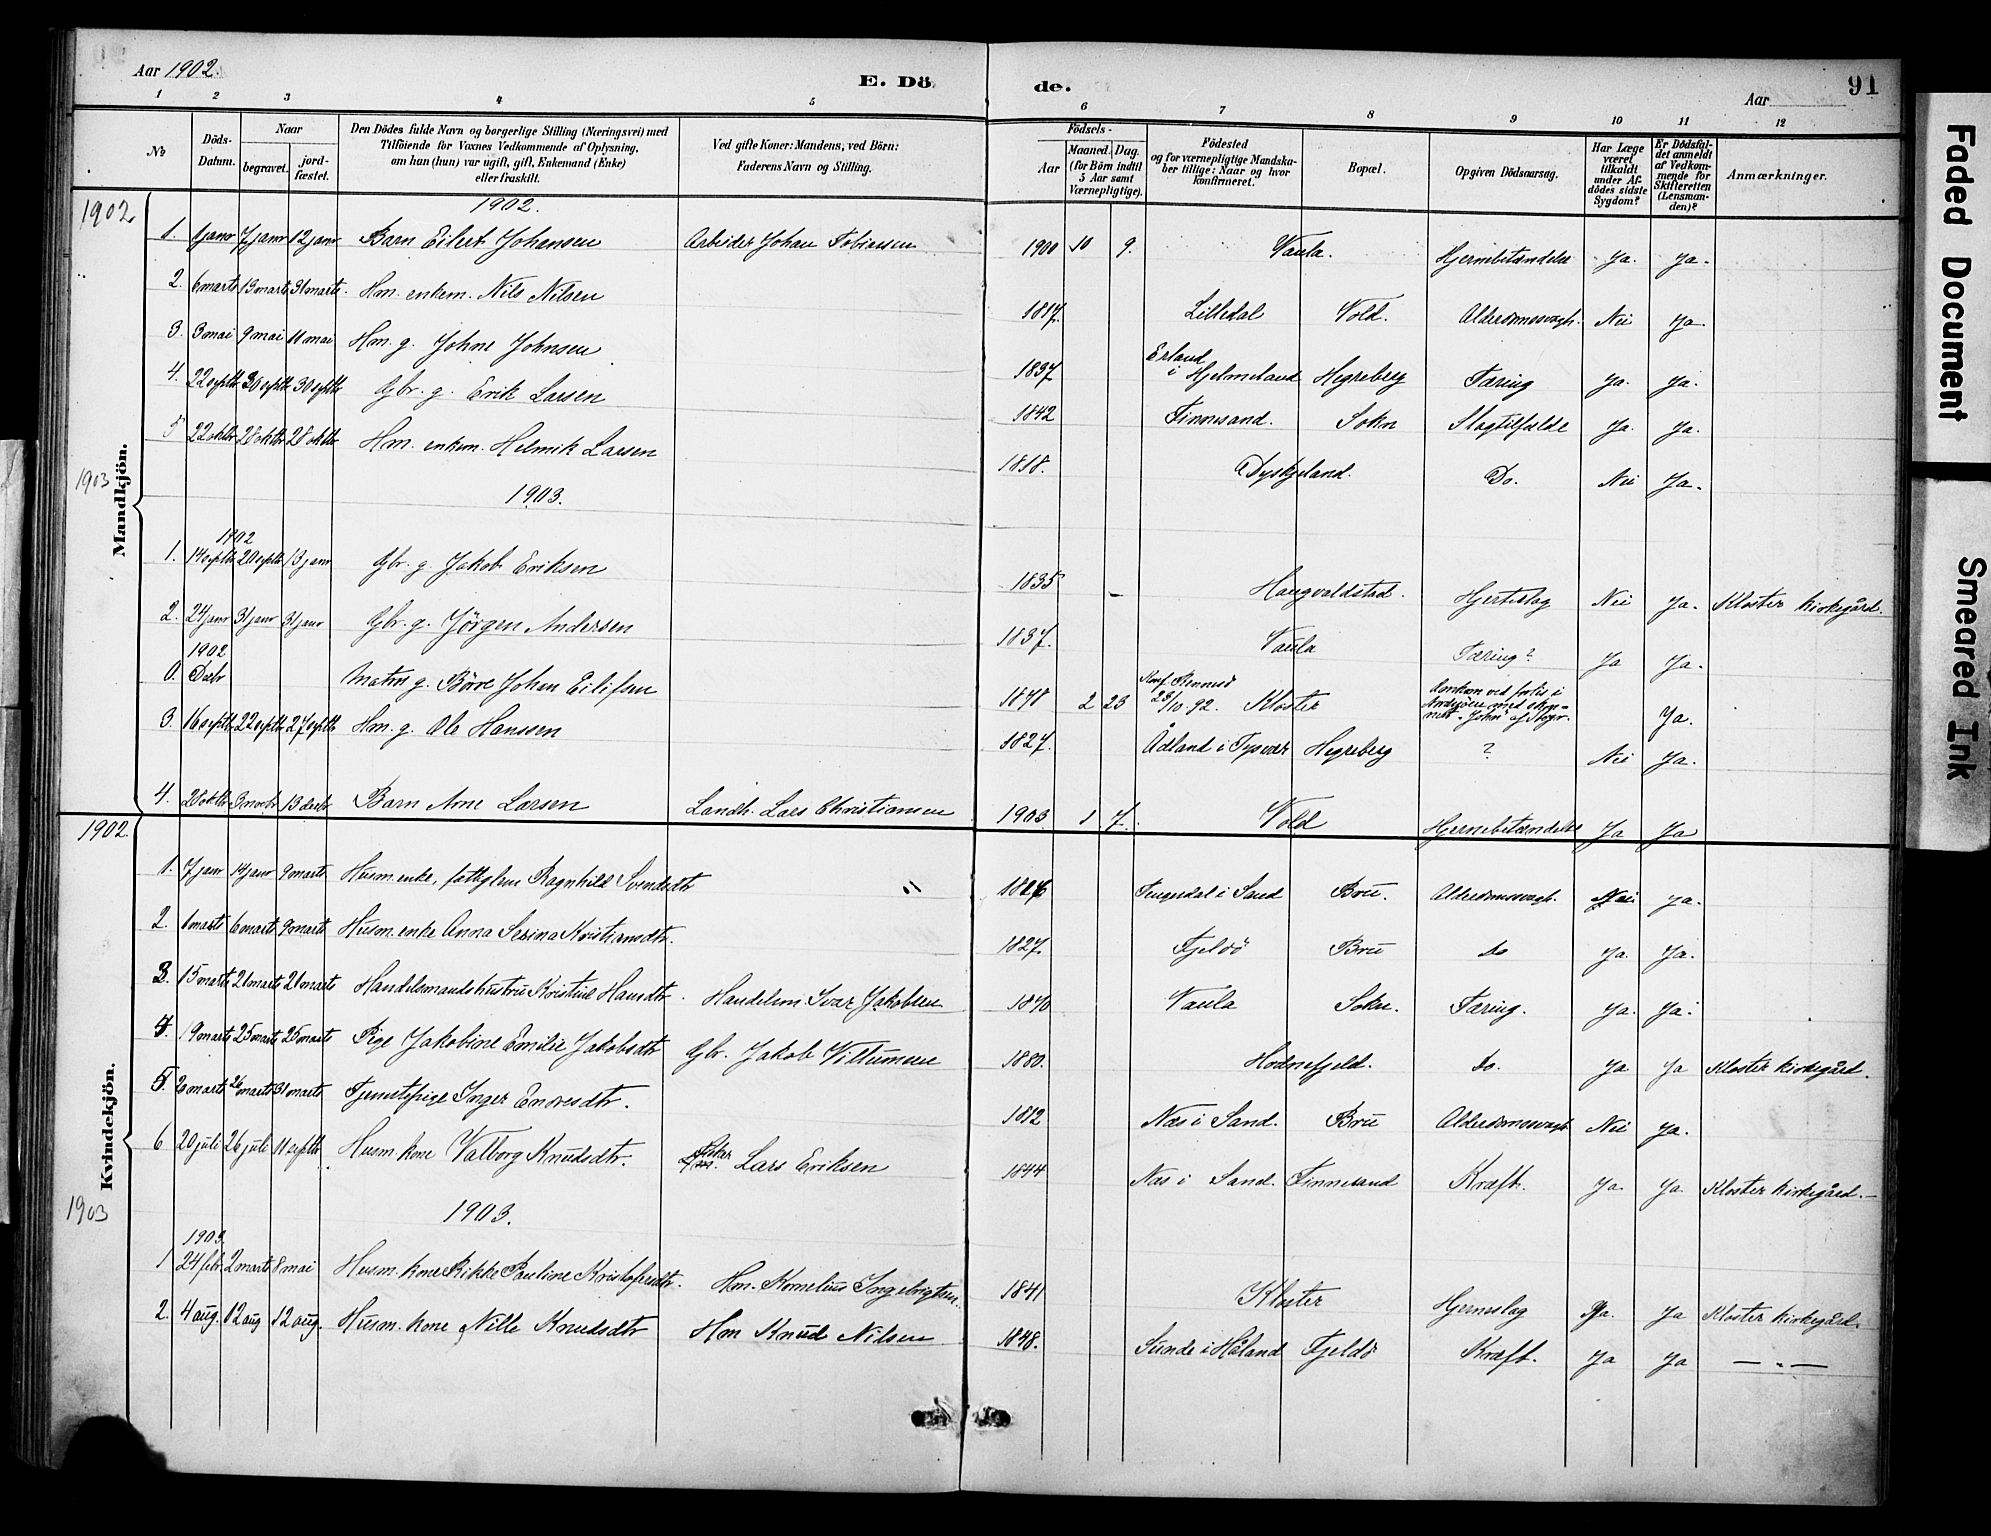 Aar 1902.
E. Dö
de.
Aar
91
1 2 3 4 5 6 7 8 9 10 11 12
№
Döds-Datum.
Naar
begravet.
jord-fæstet.
Den Dödes fulde Navn og borgerlige Stilling (Næringsvei) med
Tilföiende for Voxnes Vedkommende af Oplysning,
om han (hun) var ugift, gift, Enkemand (Enke)
eller fraskilt.
Ved gifte Koner: Mandens, ved Börn:
Faderens Navn og Stilling.
Födsels-
Aar
Maaned. Dag.
(for Börn indtil
5 Aar samt
Værnepligtige).
Födested
og for værnepligtige Mandska-
ber tillige: Naar og hvor
konfirmeret.
Bopæl.
Opgiven Dödsaarsag.
Har Læge
været
tilkaldt
under Af-
dödes sidste
Sygdom?
Er Dödsfal-
det anmeldt
af Vedkom-
mende for
Skifteretten
(Lensman-
den)?
Anmærkninger.
Mandkjön.
1902
1902.
1. 1 janr 7 janr 12 janr Barn Eilert Johansen Arbeider Johan Tobiassen 1900 10 9. Vaula. Hjernebetændelse Ja. Ja.
2. 6 marts 13 marts 31 marts. Hm. enkem. Nils Nilsen 1817. Lilledal Vold. Alderdomssvagh. Nei Ja.
3. 3 mai 9 mai 11 mai Hm. g. Johne Johnsen 1837 Erland i Hjelmeland Hegreberg Tæring Ja. Ja.
4. 22 septbr 30 septbr 30 septbr Gbr. g. Erik Larsen 1842 Finnesand. Sokn Slagtilfælde Ja. Ja.
5 22 oktbr 28 oktbr 28 oktbr Hm. enkem. Helmik Larsen 1818. Dyskjeland. Do. Nei Ja.
1903
1903.
1902
1. 14 septbr 20 septbr 13 janr Gbr. g. Jakob Eriksen 1835 - Haugvaldstad. Hjerteslag Nei Ja. Kloster kirkegård.
2. 24 janr 31 janr 31 janr Gbr. g. Jörgen Andersen 1837. Vaula Tæring? Ja Ja.
1902
0. Debr Matros g. Börre Johan Eilifsen 1878 2 23 Konf. Rennesö 23/10 92. Kloster Omkom ved forlis i Nordsjöen med Ja.
3. 16 septbr 22 septbr 27 septbr Hm. g. Ole Hanssen 1827. Ådland i Tysvær Hegreberg ? Nei Ja.
4. 28 oktbr 3 novbr 13 decbr Barn Arne Larsen Landh. Lars Christiansen 1903 1 7. Vold Hjernebetændelse Ja Ja
Kvindekjön.
1902.
1. 7 janr 14 janr 9 marts Husm. enke, fattiglem Ragnhild Svendsdtr " 1826 Tengesdal i Sand Bru. Alderdomssvagh. Nei Ja.
2. 1 marts 6 marts 9 marts Husm. enke Anna Serina Kristiansdtr. 1827. Fjeldö Bru Do Ja. Ja.
3. 15 marts 21 marts 21 marts Handelsmandshustru Kristine Hansdtr. Handelsm. Ivar Jakobsen 1870 Vaula Sokn. Tæring. Ja. Ja.
4. 19 marts 25 marts 25 marts Pige Jakobine Emilie Jakobsdtr Gbr. Jakob Villumsen 1880. Hodnefjeld. Do. Ja Ja Kloster kirkegård.
5. 20 marts 26 marts 31 marts Tjenestepige Inger Endresdtr. 1812 Næs i Sand. Bru Alderdomssvagh. Nei Ja.
6 20 juli 26 juli 11 septbr Husm. kone Valborg Knudsdtr. Fisker Lars Eriksen 1844 Næs i Sand. Finnesand Kræft. Ja. Ja. Kloster kirkegård.
1903
1903.
1903.
1 24 febr. 2 marts 8 mai Husm. kone Rikke Pauline Kristofersdtr. Hm. Kornelius Ingebrigtsen. 1841 Kloster Hjerneslag Ja. Ja Kloster kirkegård.
2. 4 aug. 12 aug 12 aug. Husm. kone Nille Knudsdtr Hm Knud Nilsen 1848. Sunde i Håland Fjeldö Kræft. Ja Ja — „ —
Faded Document
Smeared Ink